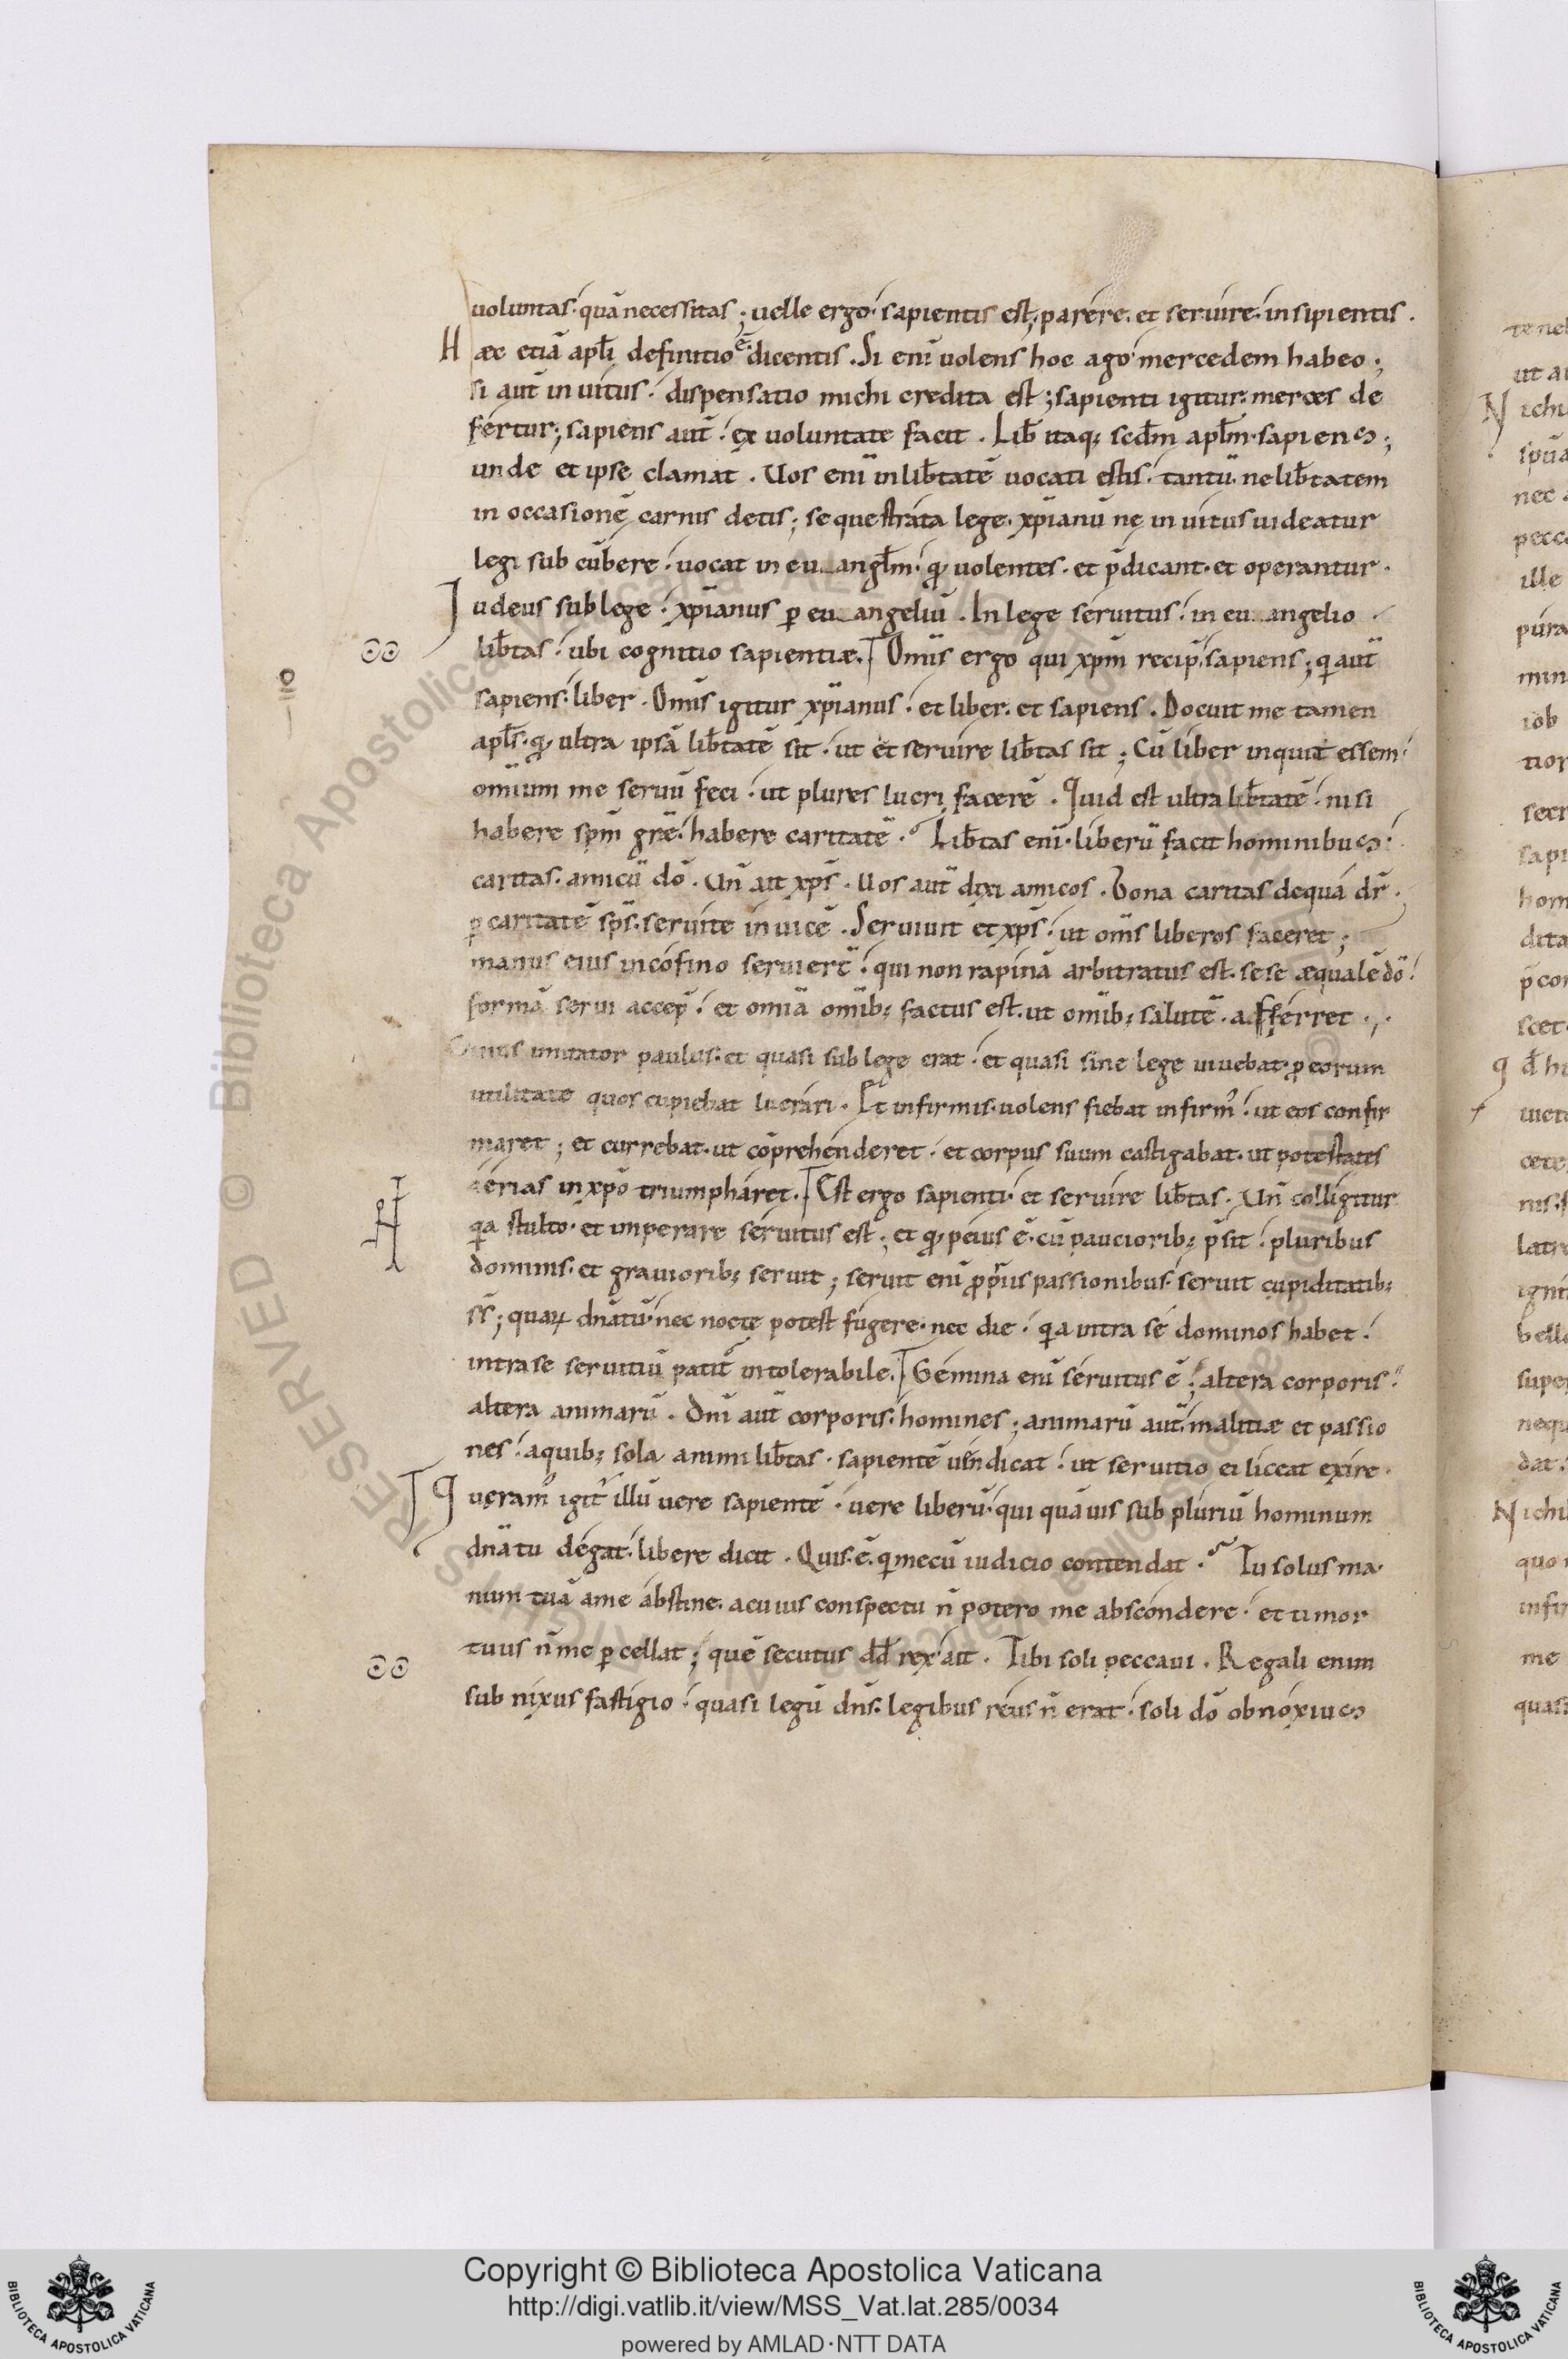 uoluntas· quā necessitas; uelle ergo· sapientis est, parere· et seruire· insipientis.
Haec etiā apl̄i definitio ē· dicentis. Si enī uolens hoc ago· mercedem habeo;
si aut̄ inuitus· dispensatio michi credita est; sapienti igitur· merces de
fertur; sapiens aut̄· ex uoluntate facit. Lib̄ itaq; scd̄m apl̄m· sapiens;
unde et ipse clamat. Uos enī in lib̄tatē uocati estis· tantū· ne lib̄tatem
in occasionē carnis detis; sequestrata lege· xp̄ianū ne inuitus uideatur
legi subcūbere· uocat in euangl̄m· q̄ uolentes· et p̄dicant· et operantur.
Iudeus sub lege· xp̄ianus ꝑ euangeliū. In lege seruitus· in euangelio
lib̄tas· ubi cognitio sapientiæ. Om̄is ergo qui xp̄m recip̄, sapiens; q aut̄
sapiens· liber. Om̄is igitur xp̄ianus· et liber· et sapiens. Docuit me tamen
apl̄s· q ultra ipsā lib̄tatē sit· ut et seruire lib̄tas sit; Cū liber inquit essem·
om̄ium me seruū feci· ut plures lucri facerē. Quid est ultra lib̄tatē· nisi
habere sp̄m gr̄e· habere caritatē. Lib̄tas enī· liberū facit hominibus·
caritas· amicū dō. Un̄ ait xp̄s. Uos aut̄ dixi amicos. Bona caritas de qua dr̄.
ꝑ caritatē sp̄s· seruite inuicē. Seruiuit et xp̄s· ut om̄s liberos faceret;
manus eius in cofino seruier̄· qui non rapinā arbitratus est· sese æqualē dō·
formā serui accep̄· et omīa omīb; factus est· ut omīb; salutē· afferret.
Cuius imitator paulus· et quasi sub lege erat· et quasi sine lege uiuebat· ꝓ eorum
utilitate quos cupiebat lucrari. Et infirmis· uolens fiebat infirm᾿· ut eos confir
maret; et currebat· ut cōprehenderet· et corpus suum castigabat· ut potestates
aerias in xp̄o triumpharet. Est ergo sapienti· et seruire lib̄tas. Un̄ colligitur
qa stulto· et imperare seruitus est; et q peius ē· cū pauciorib; p̄sit· pluribus
dominis· et grauiorib; seruit; seruit enī ꝓpriis passionibus· seruit cupiditatib;
ss̄; quaꝝ dn̄atū· nec nocte potest fugere· nec die· qa intra se dominos habet·
intra se seruitiū patit᾿ intolerabile. Gemina enī seruitus ē· altera corporis·
altera animarū. Dn̄i aut̄ corporis· homines; animarū aut̄· malitiæ et passio
nes· a quib; sola animi lib̄tas· sapientē uendicat· ut seruitio ei liceat exire.
Queram᾿ igit᾿ illū uere sapientē· uere liberū· qui quāuis sub pluriū hominum
dn̄atu degat· libere dicit. Quis ē· q mecū iudicio contendat. Tu solus ma
num tuā a me abstine· a cuius conspectu n̄ potero me abscondere· et timor
tuus n̄ me ꝑcellat; quē secutus dd̄ rex ait. Tibi soli peccaui. Regali enim
subnixus fastigio· quasi legū dn̄s· legibus reus n̄ erat· soli dō obnoxius
RESERVED © Biblioteca Apostolica
Copyright © Biblioteca Apostolica Vaticana
http://digi.vatlib.it/view/MSS_Vat.lat.285/0034
powered by AMLAD·NTT DATA
BIBLIOTECA APOSTOLICA VATICANA
BIBLIOTECA APOSTOLICA VATICANA